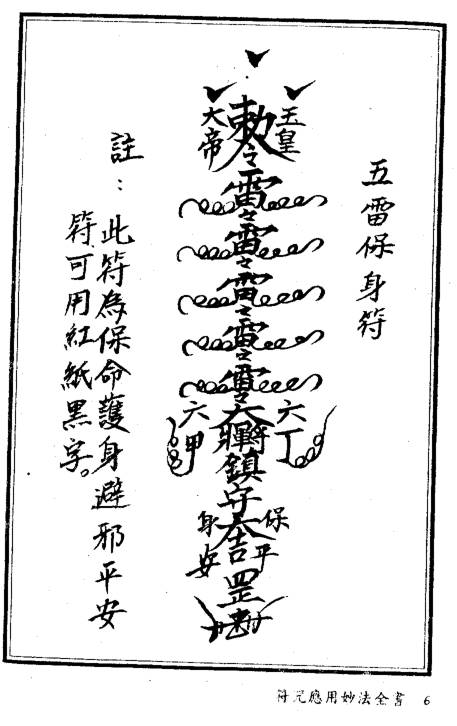 五雷保身符
玉皇
勅令
大帝
雷々
雷々
雷々
雷々
雷々
六丁
大將鎮守
六甲
保平
大吉
身安
罡
註：
此符為保命護身避邪平安
符可用紅紙黑字。
符咒應用妙法全書 6